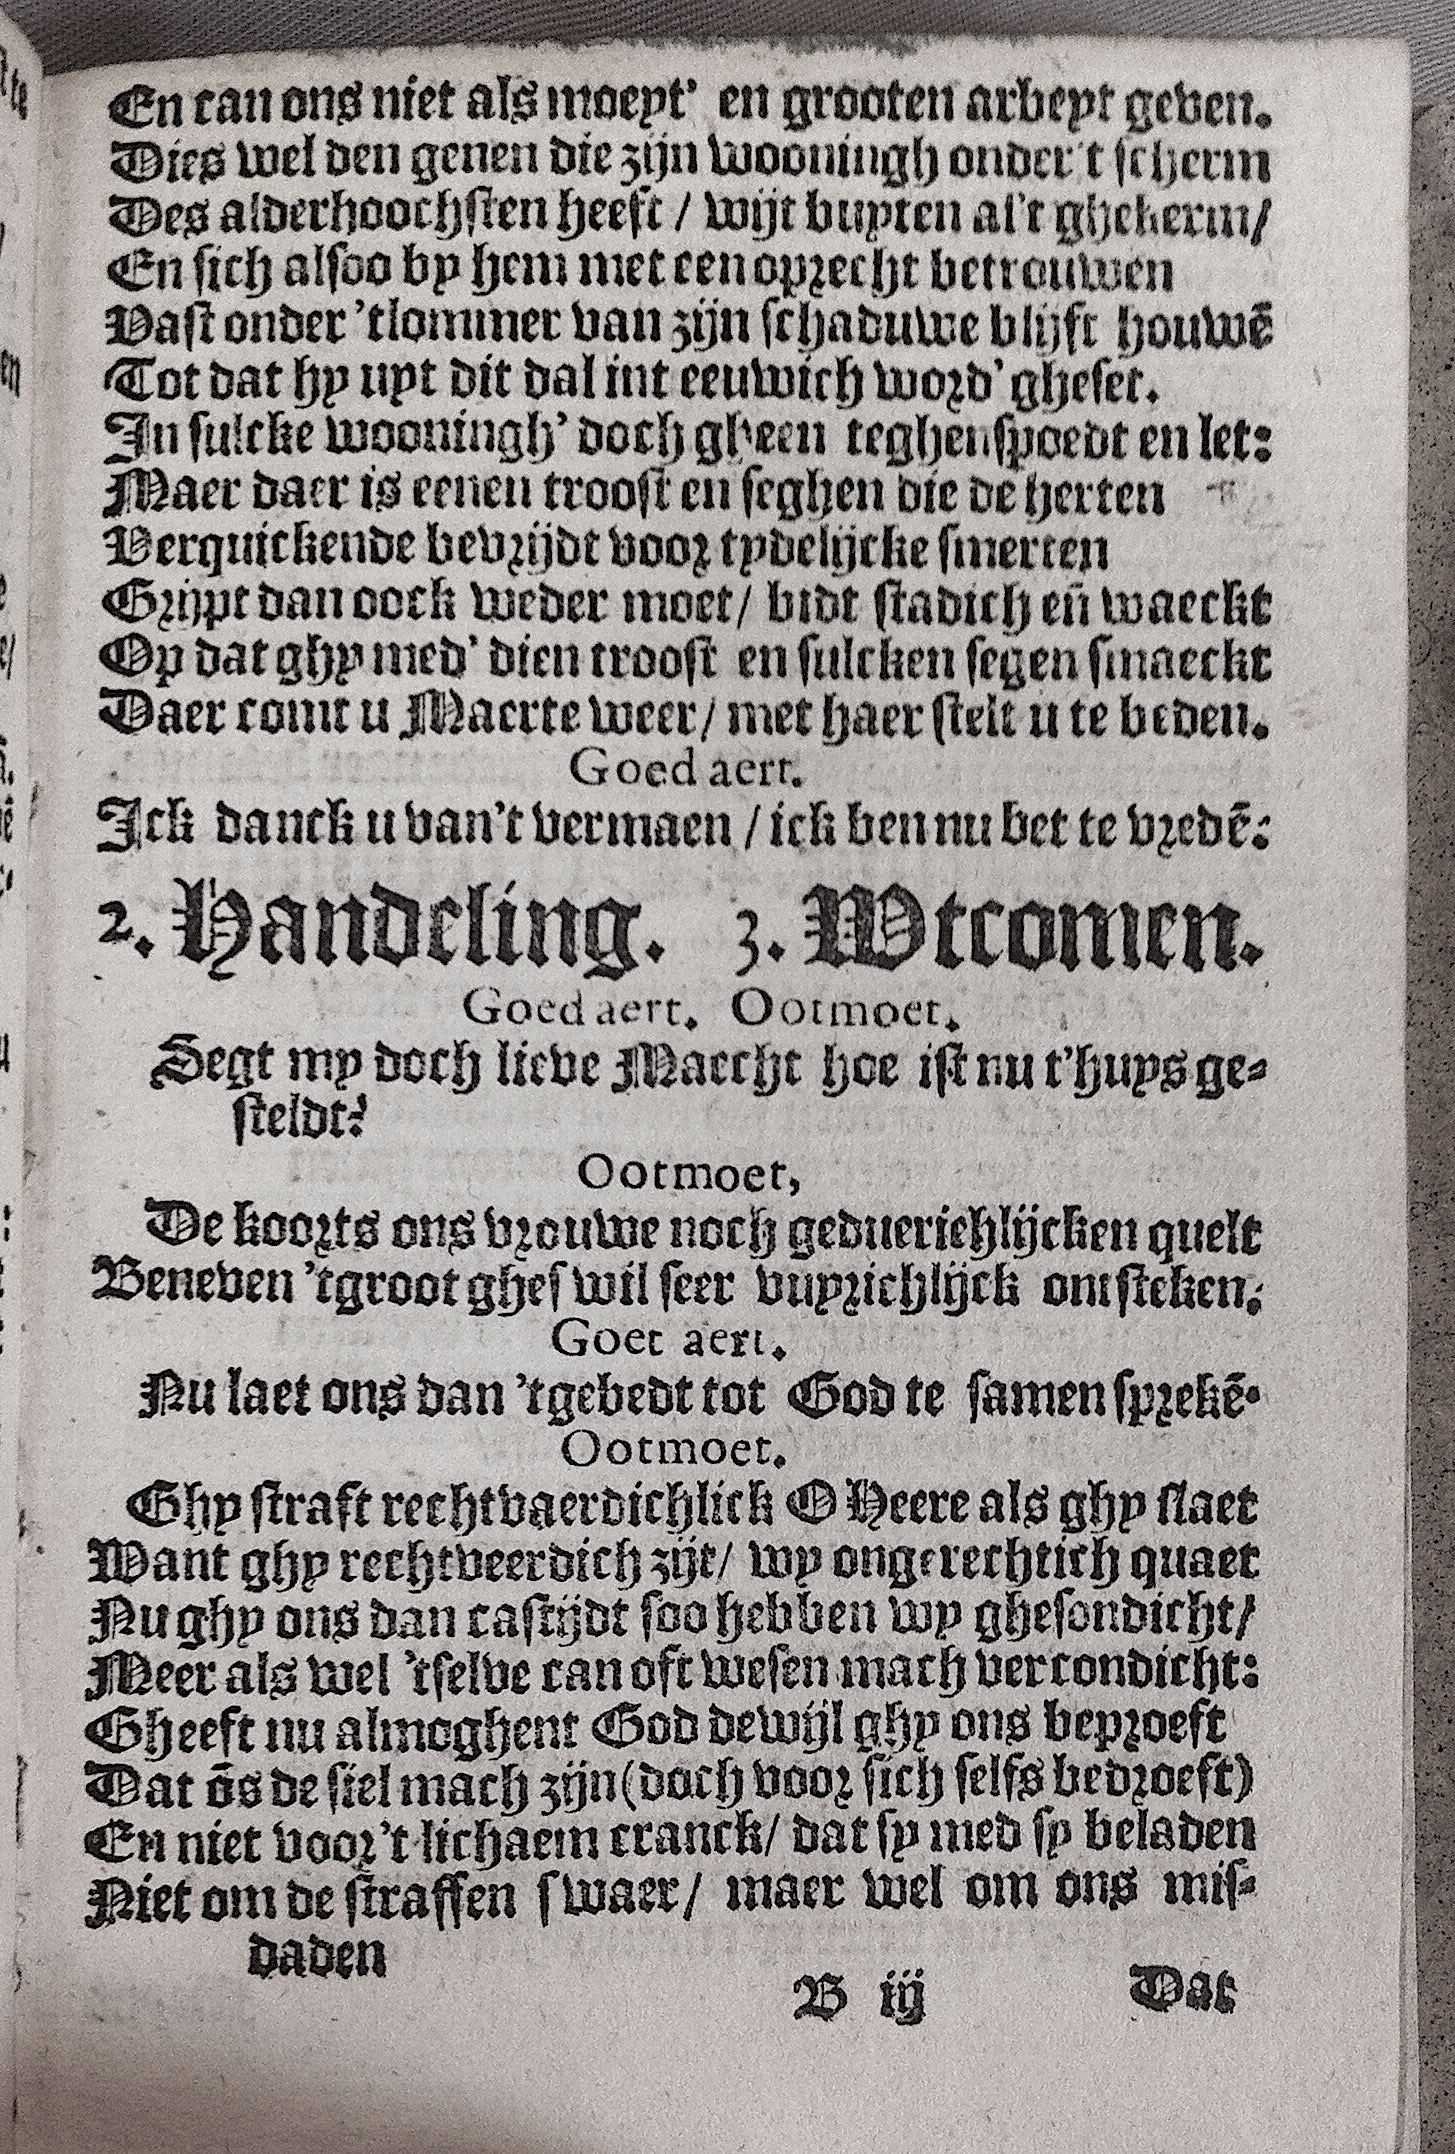 En can ons niet als moeyt' en grooten arbeyt geven.
Dies wel den genen die zijn wooningh onder't scherm
Des alderhoochsten heeft / wijt buyten al't ghekerm/
En sich alsoo by hem met een oprecht betrouwen
Vast onder 'tlommer van zijn schaduwe blijft houwē
Tot dat hy uyt dit dal int eeuwich word' gheset.
In sulcke wooningh' doch gheen teghenspoedt en let:
Maer daer is eenen troost en seghen die de herten
Verquickende bevrijdt voor tydelijcke smerten
Grijpt dan oock weder moet/ bidt stadich eñ waeckt
Op dat ghy med' dien troost en sulcken segen smaeckt
Daer comt u Maerte weer/ met haer stelt u te beden.
Goed aert.
Ick danck u van't vermaen / ick ben nu bet te vredē:
2. Handeling. 3. Wtcomen.
Goed aert. Ootmoet.
Segt my doch lieve Maecht hoe ist nu t'huys ge-
steldt?
Ootmoet,
De koorts ons vrouwe noch geduerichlijcken quelt
Beneven 'tgroot gheswil seer vuyrichlijck ontsteken.
Goet aert.
Nu laet ons dan 'tgebedt tot God te samen sprekē.
Ootmoet.
Ghy straft rechtvaerdichlick O Heere als ghy slaet
Want ghy rechtveerdich zijt/ wy ongerechtich quaet
Nu ghy ons dan castijdt soo hebben wy ghesondicht/
Meer als wel 'tselve can oft wesen mach vercondicht:
Gheeft nu almoghent God dewijl ghy ons beproeft
Dat ōs de siel mach zijn (doch voor sich selfs bedroeft)
En niet voor't lichaem cranck/ dat sy med sy beladen
Niet om de straffen swaer/ maer wel om ons mis-
daden
B iij Dat